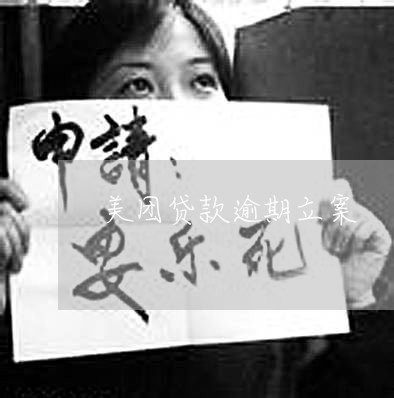 申請：
美团贷款逾期立案
安乐死